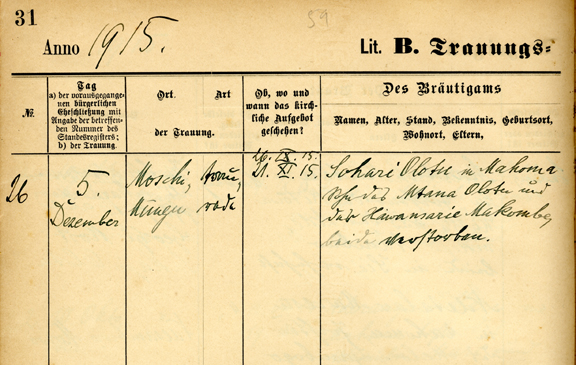 31
59
Anno 1915.
Lit. B. Trauungs=
№.
Tag
a) der vorausgegange-
nen bürgerlichen
Eheschließung mit
Angabe der betreffen-
den Nummer des
Standesregisters;
b) der Trauung.
Ort Art
der Trauung.
Ob, wo und
wann das kirch-
liche Aufgebot
geschehen?
Des Bräutigams
Namen, Alter, Stand, Bekenntnis, Geburtsort,
Wohnort, Eltern,
26
5.
Dezember
Moschi,
Trau,
rede
XI. 15.
21. XI. 15.
Sohari Olotu in Mahoma
des Mtana Olotu und
der Makombe,
beide verstorben.